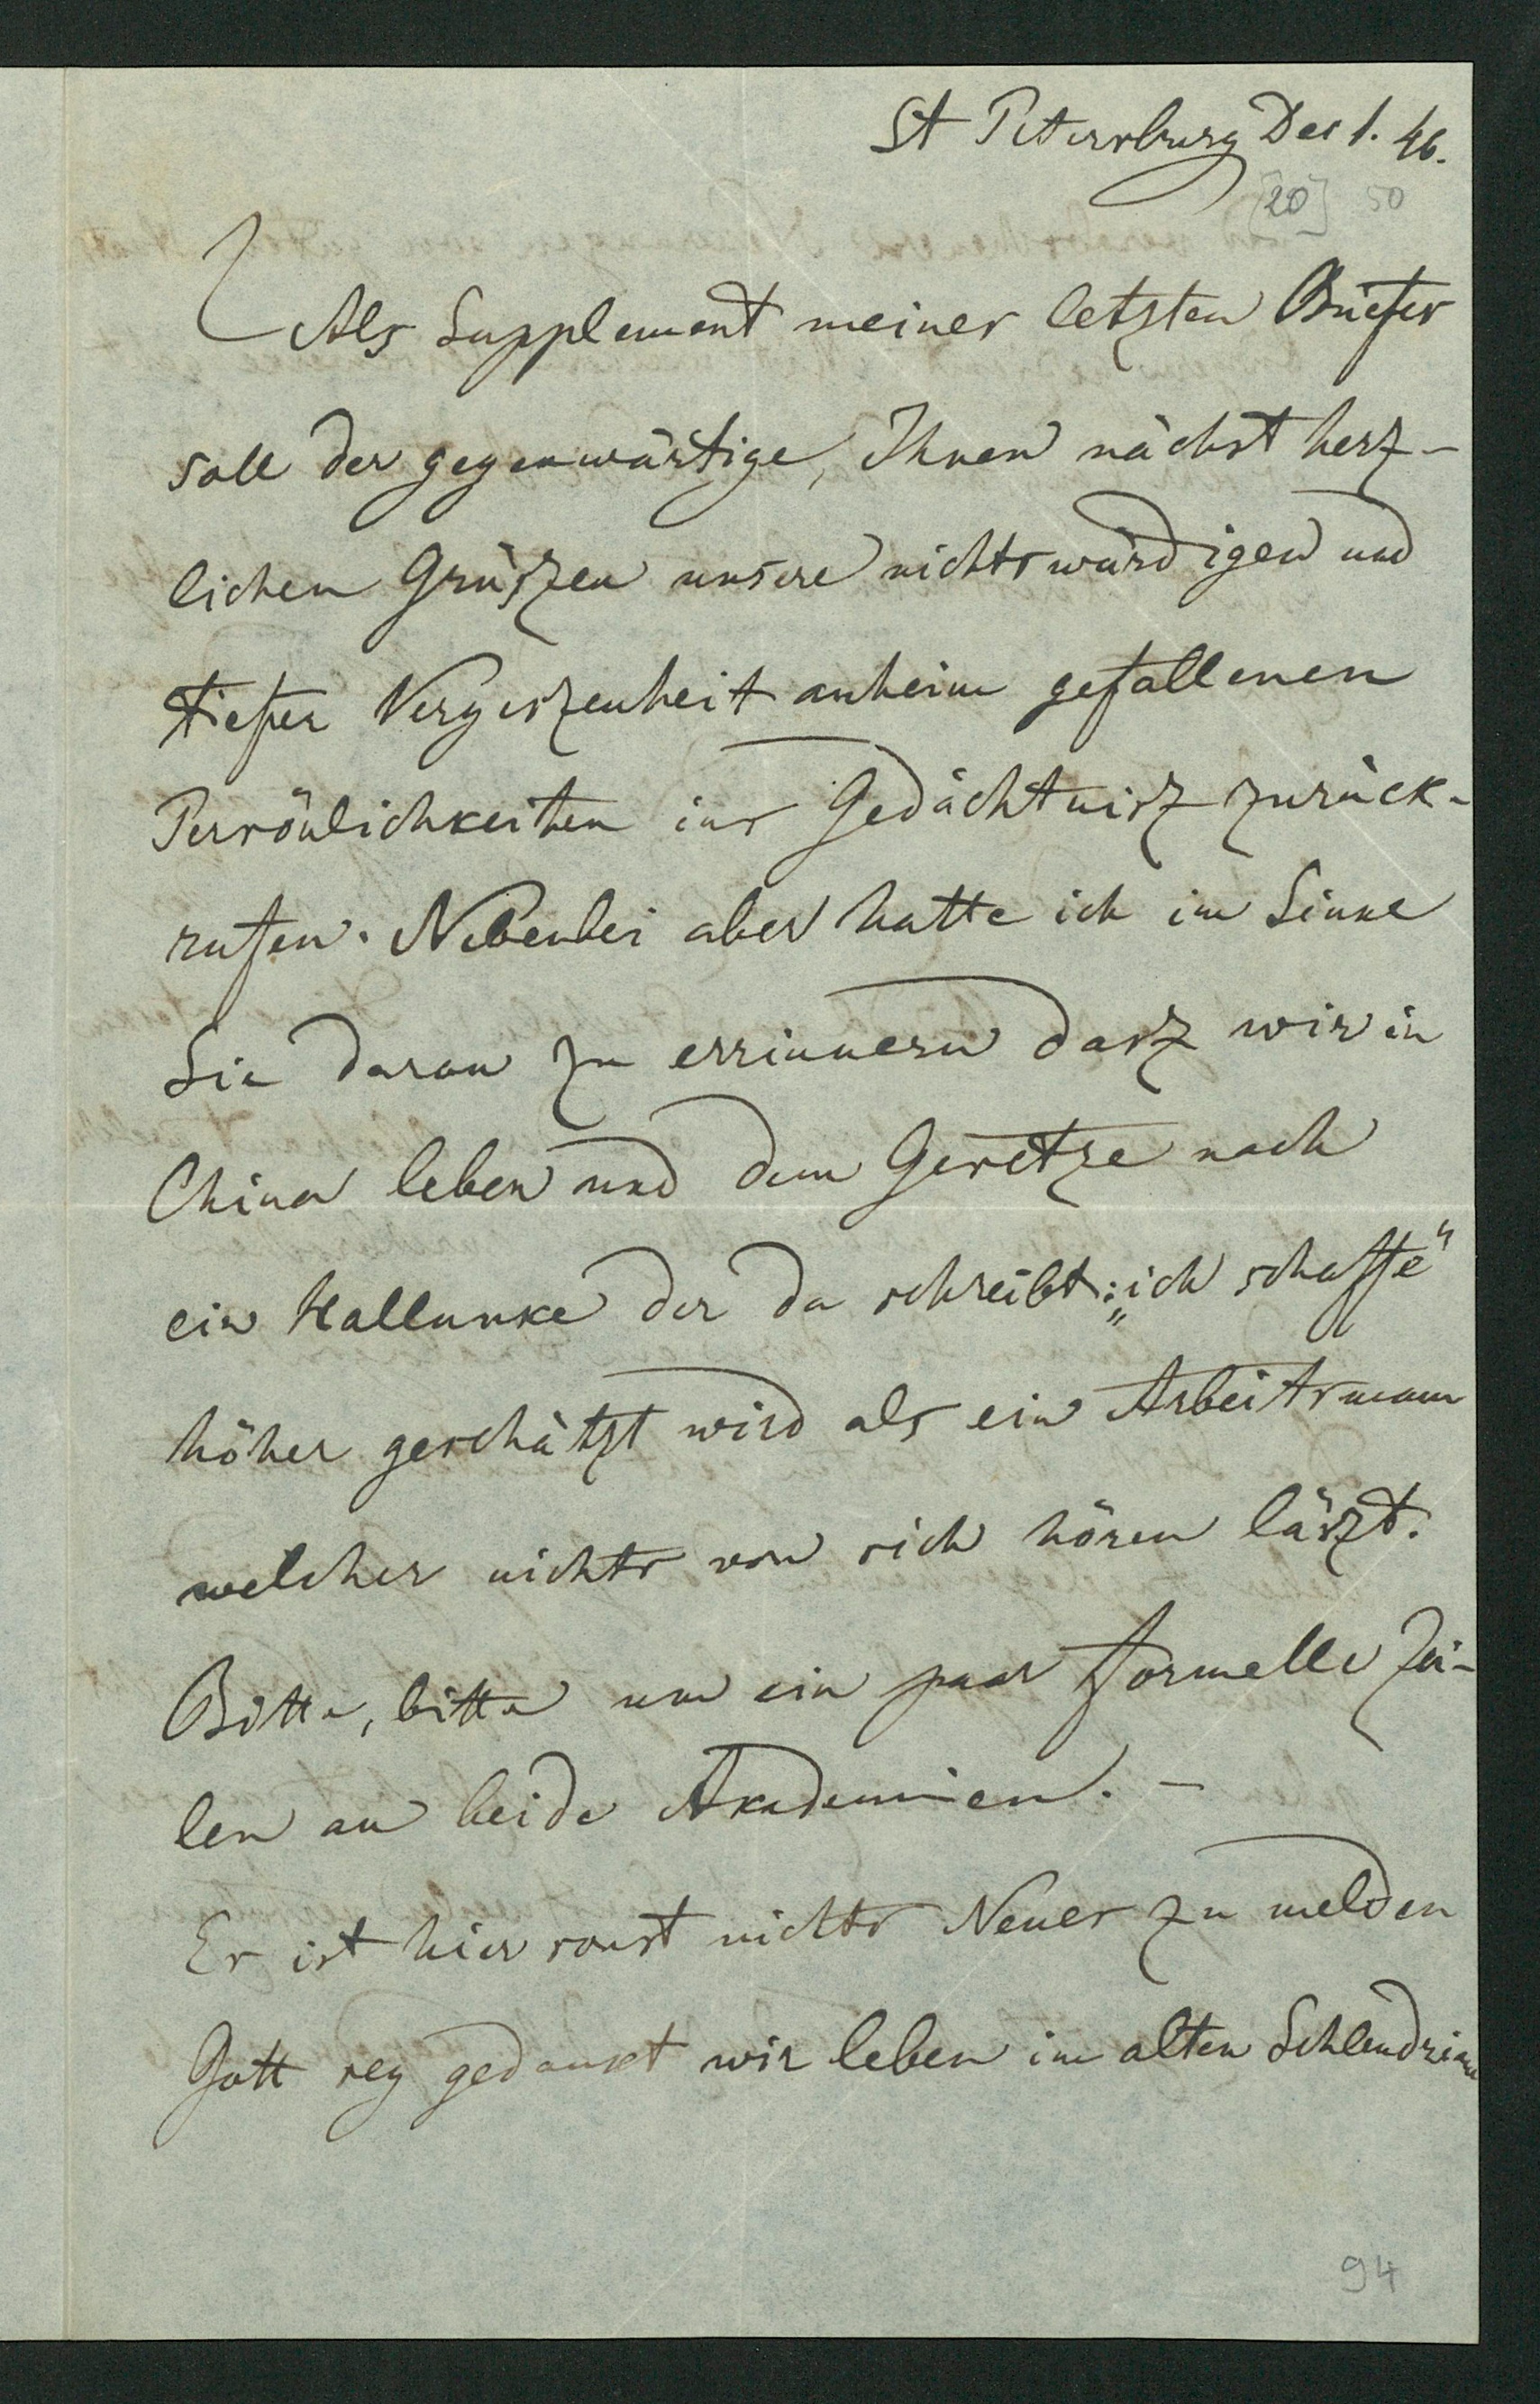 St Petersburg Dec 1. 46.
[20] 50
Als Supplement meines letzten Briefes
soll der gegenwärtige, Ihnen nächst herz-
lichen Grüszen unsere nichtswürdigen und
tiefer Vergeszenheit anheim gefallenen
Persönlichkeiten ins Gedächtnisz zurück-
rufen. Nebenbei aber hatte ich im Sinne
Sie daran zu errinnern dasz wir in
China leben und dem Gesetze nach
ein Hallunke der da schreibt: „ich schaffe"
höher geschätzt wird als ein Arbeitsmann
welcher nichts von sich hören läszt.
Bitte, bitte um ein paar formelle Zei-
len an beide Akademien. -
Es ist hier sonst nichts Neues zu melden
Gott sey gedankt wir leben im alten Schlendrian
94